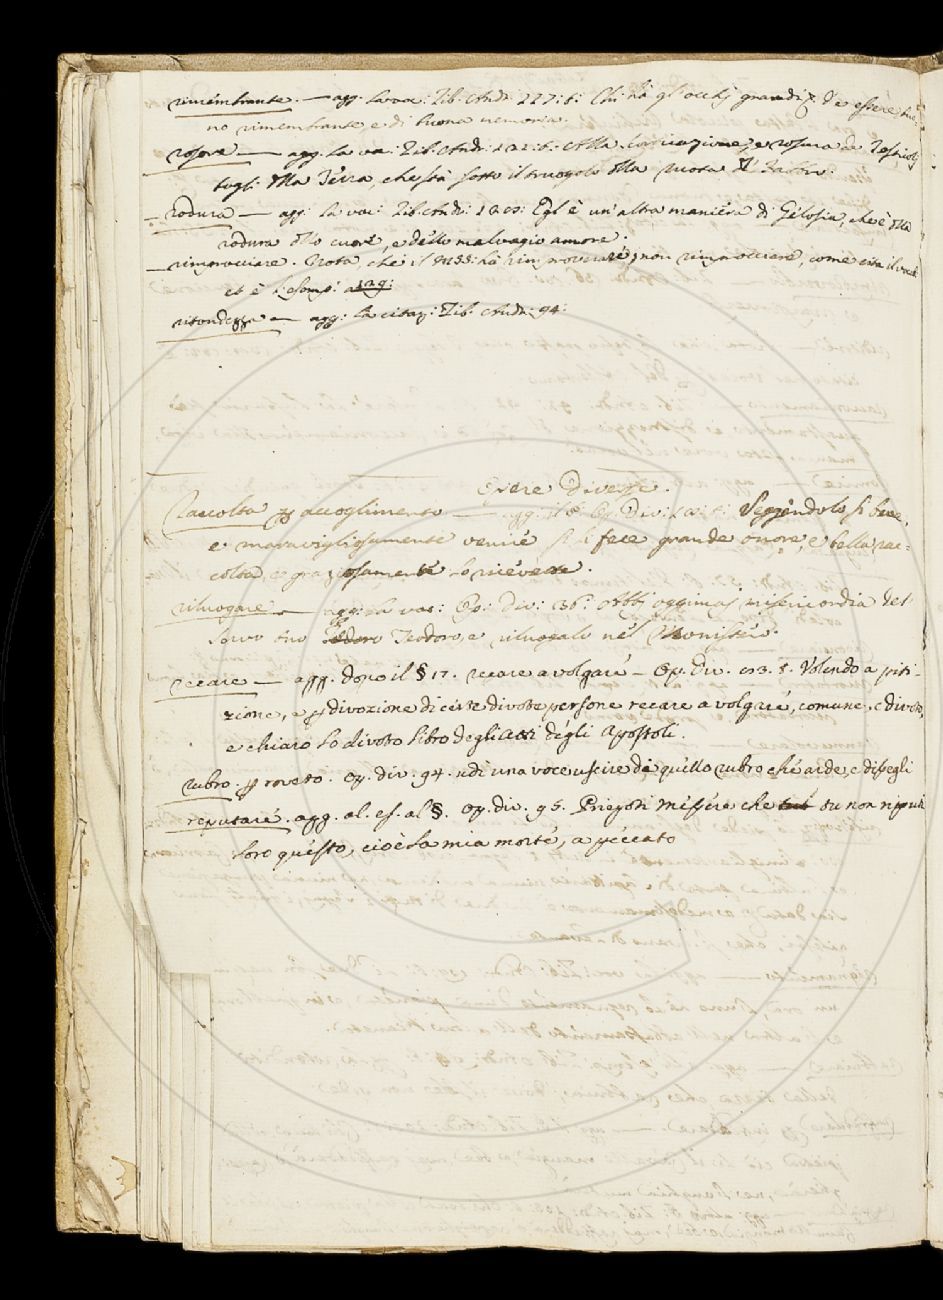 rimembrante. — agg: la voc: Lib: Andr: 117: t: Chi hà gl'occhi grandi, dè essere huo-
no rimembrante e di buona memoria.
rosore — agg: la voc: Lib: Andr: 121: t: Alla e rosura de
togli: dlla Terra, che stà sotto il truogolo dlla ruota dl Fabbro.
rodura — agg: la voc: Lib: Andr: Egl'è un'altra maniera di Gilosia, che è dlla
rodura dllo cuore, e dello malvagio amore.
rimprocciare. Nota, che il MSS: hà rimproverare, e non rimprocciare, come cita il voca:
et è l'esemp:
ritondezza — agg: la citaz: Lib: Andr: 94:
Opere Diverse.
Raccolta p accoglimento — agg: Op: Div: Veggendolo sì bene,
e maravigliosamente venire sì li fece grande onore, e bella rac-
colta, e graziosamente lo ricevette.
riluogare — agg: la voc: Op: Div: 36: Abbi oggimai misericordia del
servo tuo Teodoro, e riluogalo nel Monistero.
recare — agg. dopo il § 17. recare a volgare — Op. Div. 103. t. Volendo a piti-
zione, e p divozione di certe divote persone recare a volgare, comune, e divoto,
e chiaro lo divoto libro degli Atti degli Apostoli.
rubro. p roveto. op. div. 94. udì una voce uscire di quello rubro che arde, e dissegli
reputare. agg. al. es. al §. op. div. 95. Priegoti messere che tu non riputi
loro questo, cioè la mia morte, a peccato